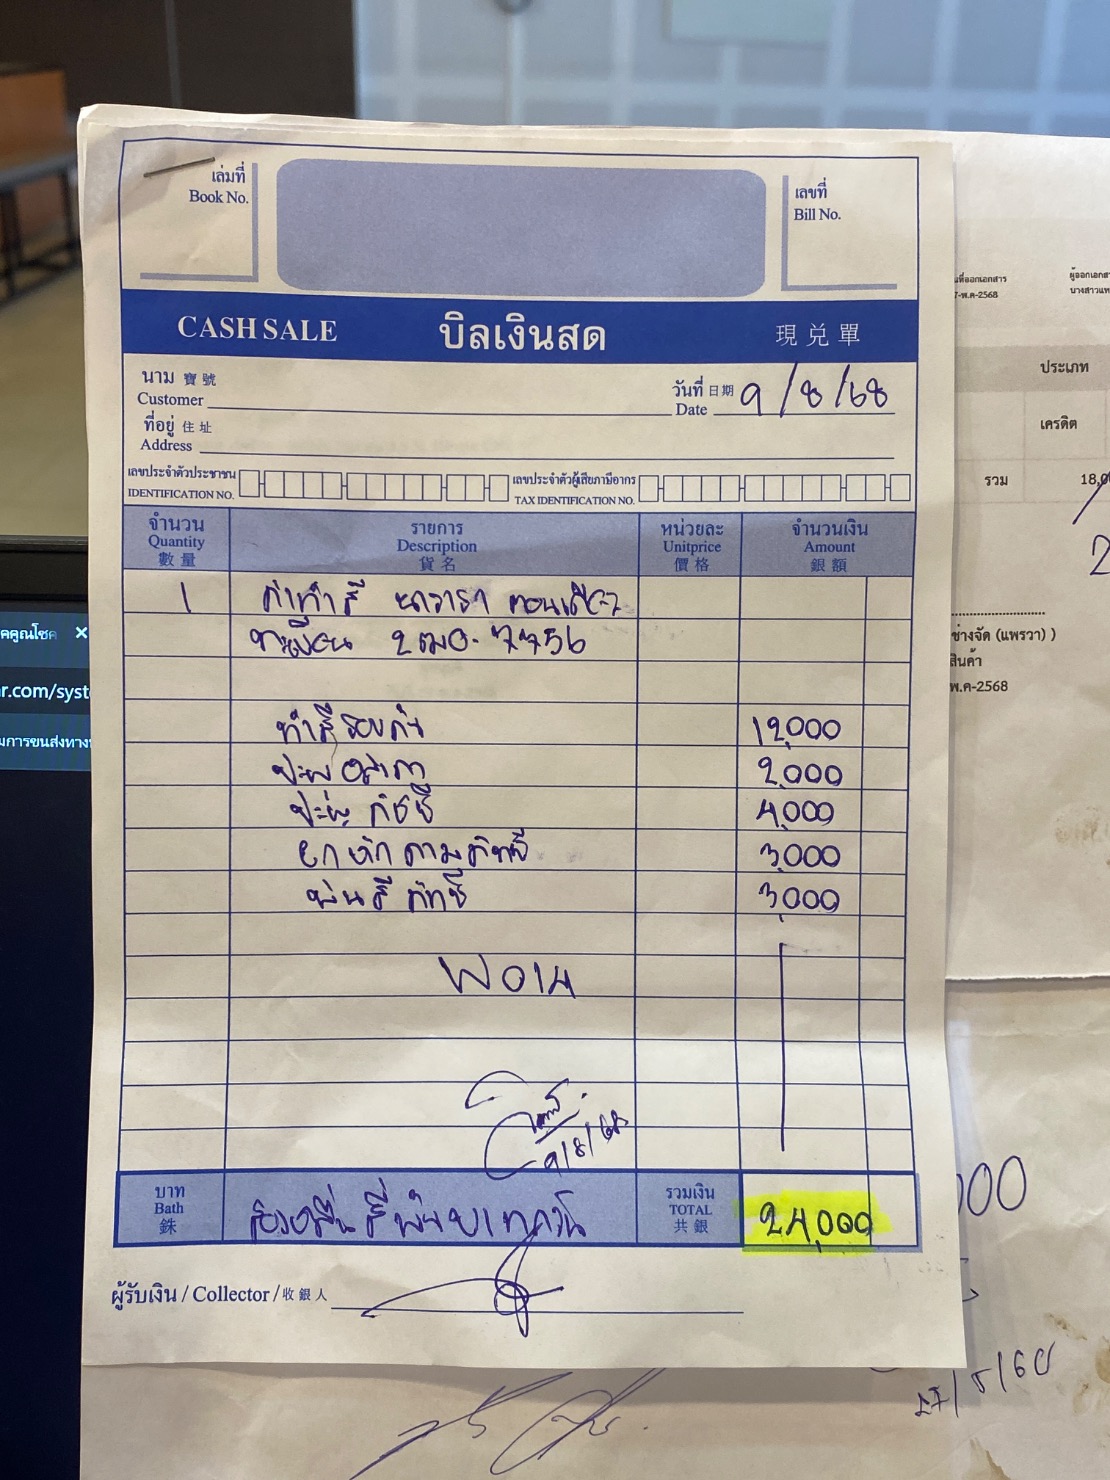 เล่มที่
Book No.
เลขที่
Bill No.
CASH SALE บิลเงินสด 現兑單
นาม 寶號
Customer
วันที่ 日期
Date 9/8/68
ที่อยู่ 住址
Address
เลขประจำตัวประชาชน
IDENTIFICATION NO.
เลขประจำตัวผู้เสียภาษีอากร
TAX IDENTIFICATION NO.
จำนวน
Quantity
數量
รายการ
Description
貨名
หน่วยละ
Unitprice
價格
จำนวนเงิน
Amount
銀額
1 ค่าทำสี นาวารา
ทะเบียน 2ฒอ-7756
ทำสีรอบคัน 12,000
2,000
ปะผุ 4,000
3,000
พ่นสี 3,000
9/8/68
บาท
Bath
銖
สองหมื่นสี่พันบาทถ้วน
รวมเงิน
TOTAL
共銀
24,000
ผู้รับเงิน / Collector / 收銀人
ที่ออกเอกสาร
7-พ.ค-2568
ผู้ออกเอกสาร
นางสาวแพ
ประเภท
เครดิต
รวม
18,0
ช่างจัด (แพรวา) )
สินค้า
พ.ค-2568
000
27/5/68
คคูณโชค
r.com/syst
มการขนส่งทาง